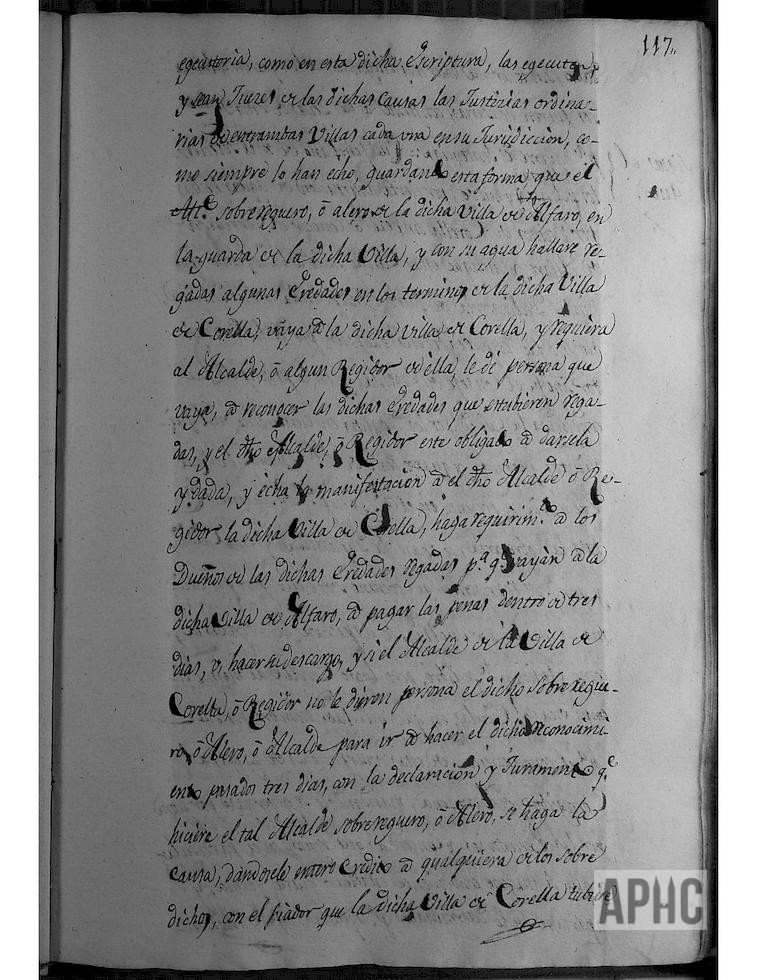 117.
egecutoria, como en esta dicha escriptura, las egecuten,
y sean Jueces de las dichas Causas las Justicias ordina-
rias de entrambas Villas cada vna en su Jurisdiccion, co-
mo siempre lo han echo, guardando esta forma, que el
Alc.e sobrereguero, ó alero de la dicha Villa de Alfaro, en
la guarda de la dicha Villa, y con su agua hallare re-
gadas algunas Eredades en los terminos de la dicha Villa
de Corella, vaya â la dicha villa de Corella, y requiera
al Alcalde, ó algun Regidor de ella, le dé persona que
vaya, â reconocer las dichas Eredades que estubieren rega-
das, y el dho Alcalde, ó Regidor esté obligado â darsela
y dada, y echa la manifestacion â el dho Alcalde ó Re-
gidor la dicha Villa de Corella, haga requirim.to a los
Dueños de las dichas Eredades regadas p.a q.e vayan â la
dicha Villa de Alfaro, â pagar las penas dentro de tres
dias, v, hacer su descargo, y si el Alcalde de la Villa de
Corella, ó Regidor no le dieren persona el dicho Sobreregue-
ro, ó Alero, ó Alcalde para ir â hacer el dicho reconocimi-
ento pasados tres dias, con la declaracion y Juramento q.e
hiciere el tal Alcalde sobrereguero, ó Alero, se haga la
Causa, dandosele entero Credito â qualquiera de los sobre
dichos, con el fiador que la dicha Villa de Corella tubiere
APHC